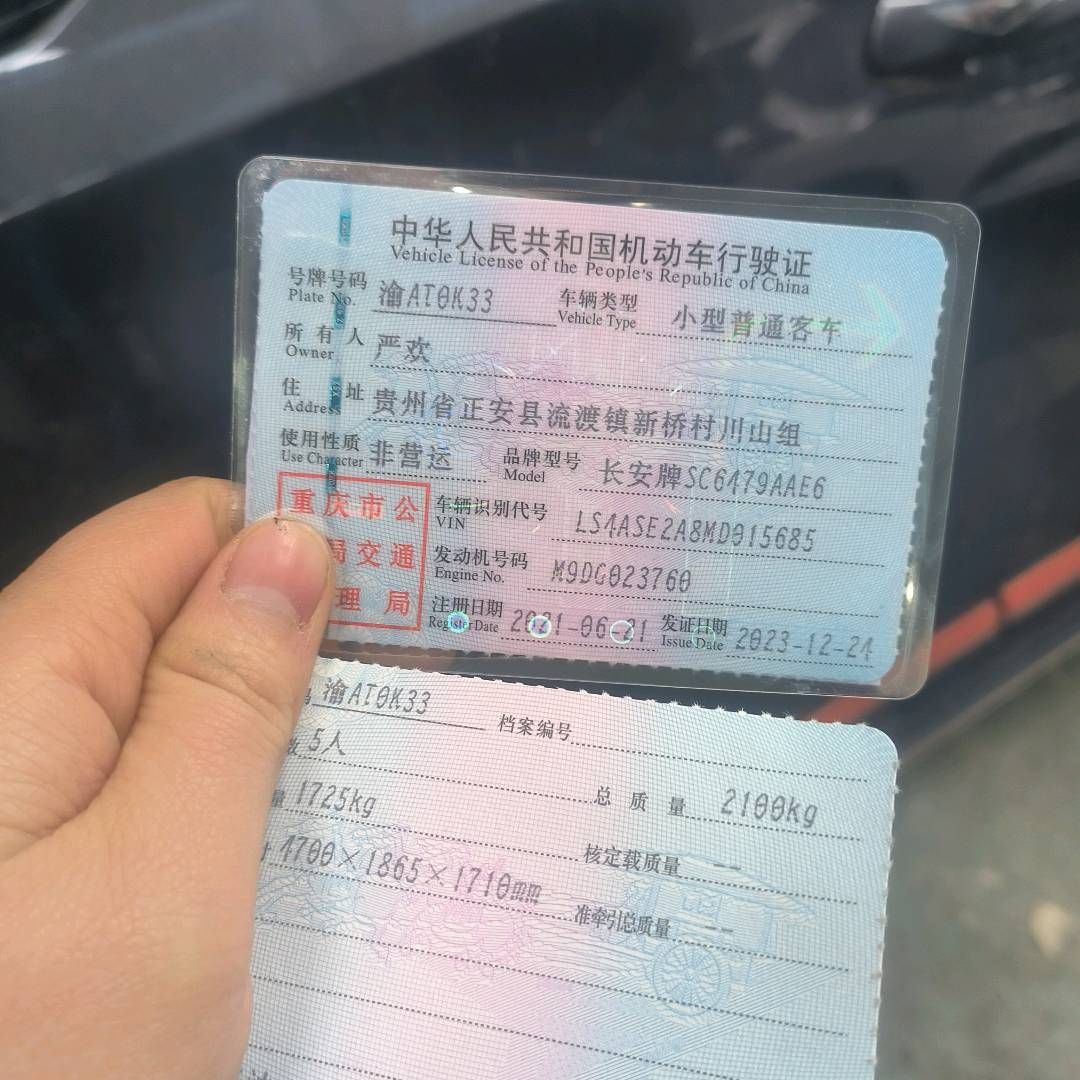 中华人民共和国机动车行驶证
Vehicle License of the People's Republic of China
号牌号码 渝AT0K33 车辆类型 小型普通客车
Plate No. Vehicle Type
所有人 严欢
Owner
住址 贵州省正安县流渡镇新桥村川山组
Address
使用性质 非营运 品牌型号 长安牌SC6479AAE6
Use Character Model
重庆市公
局交通
理局
车辆识别代号 LS4ASE2A8MD015685
VIN
发动机号码 M9DG023760
Engine No.
注册日期 2021-06-21 发证日期 2023-12-24
Register Date Issue Date
渝AT0K33 档案编号
5人
1725kg 总质量 2100kg
4700×1865×1710mm 核定载质量 --
准牵引总质量 --